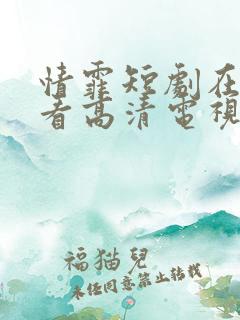 情霏短劇在
看高清電視
福猫兒
未经同意禁止转载